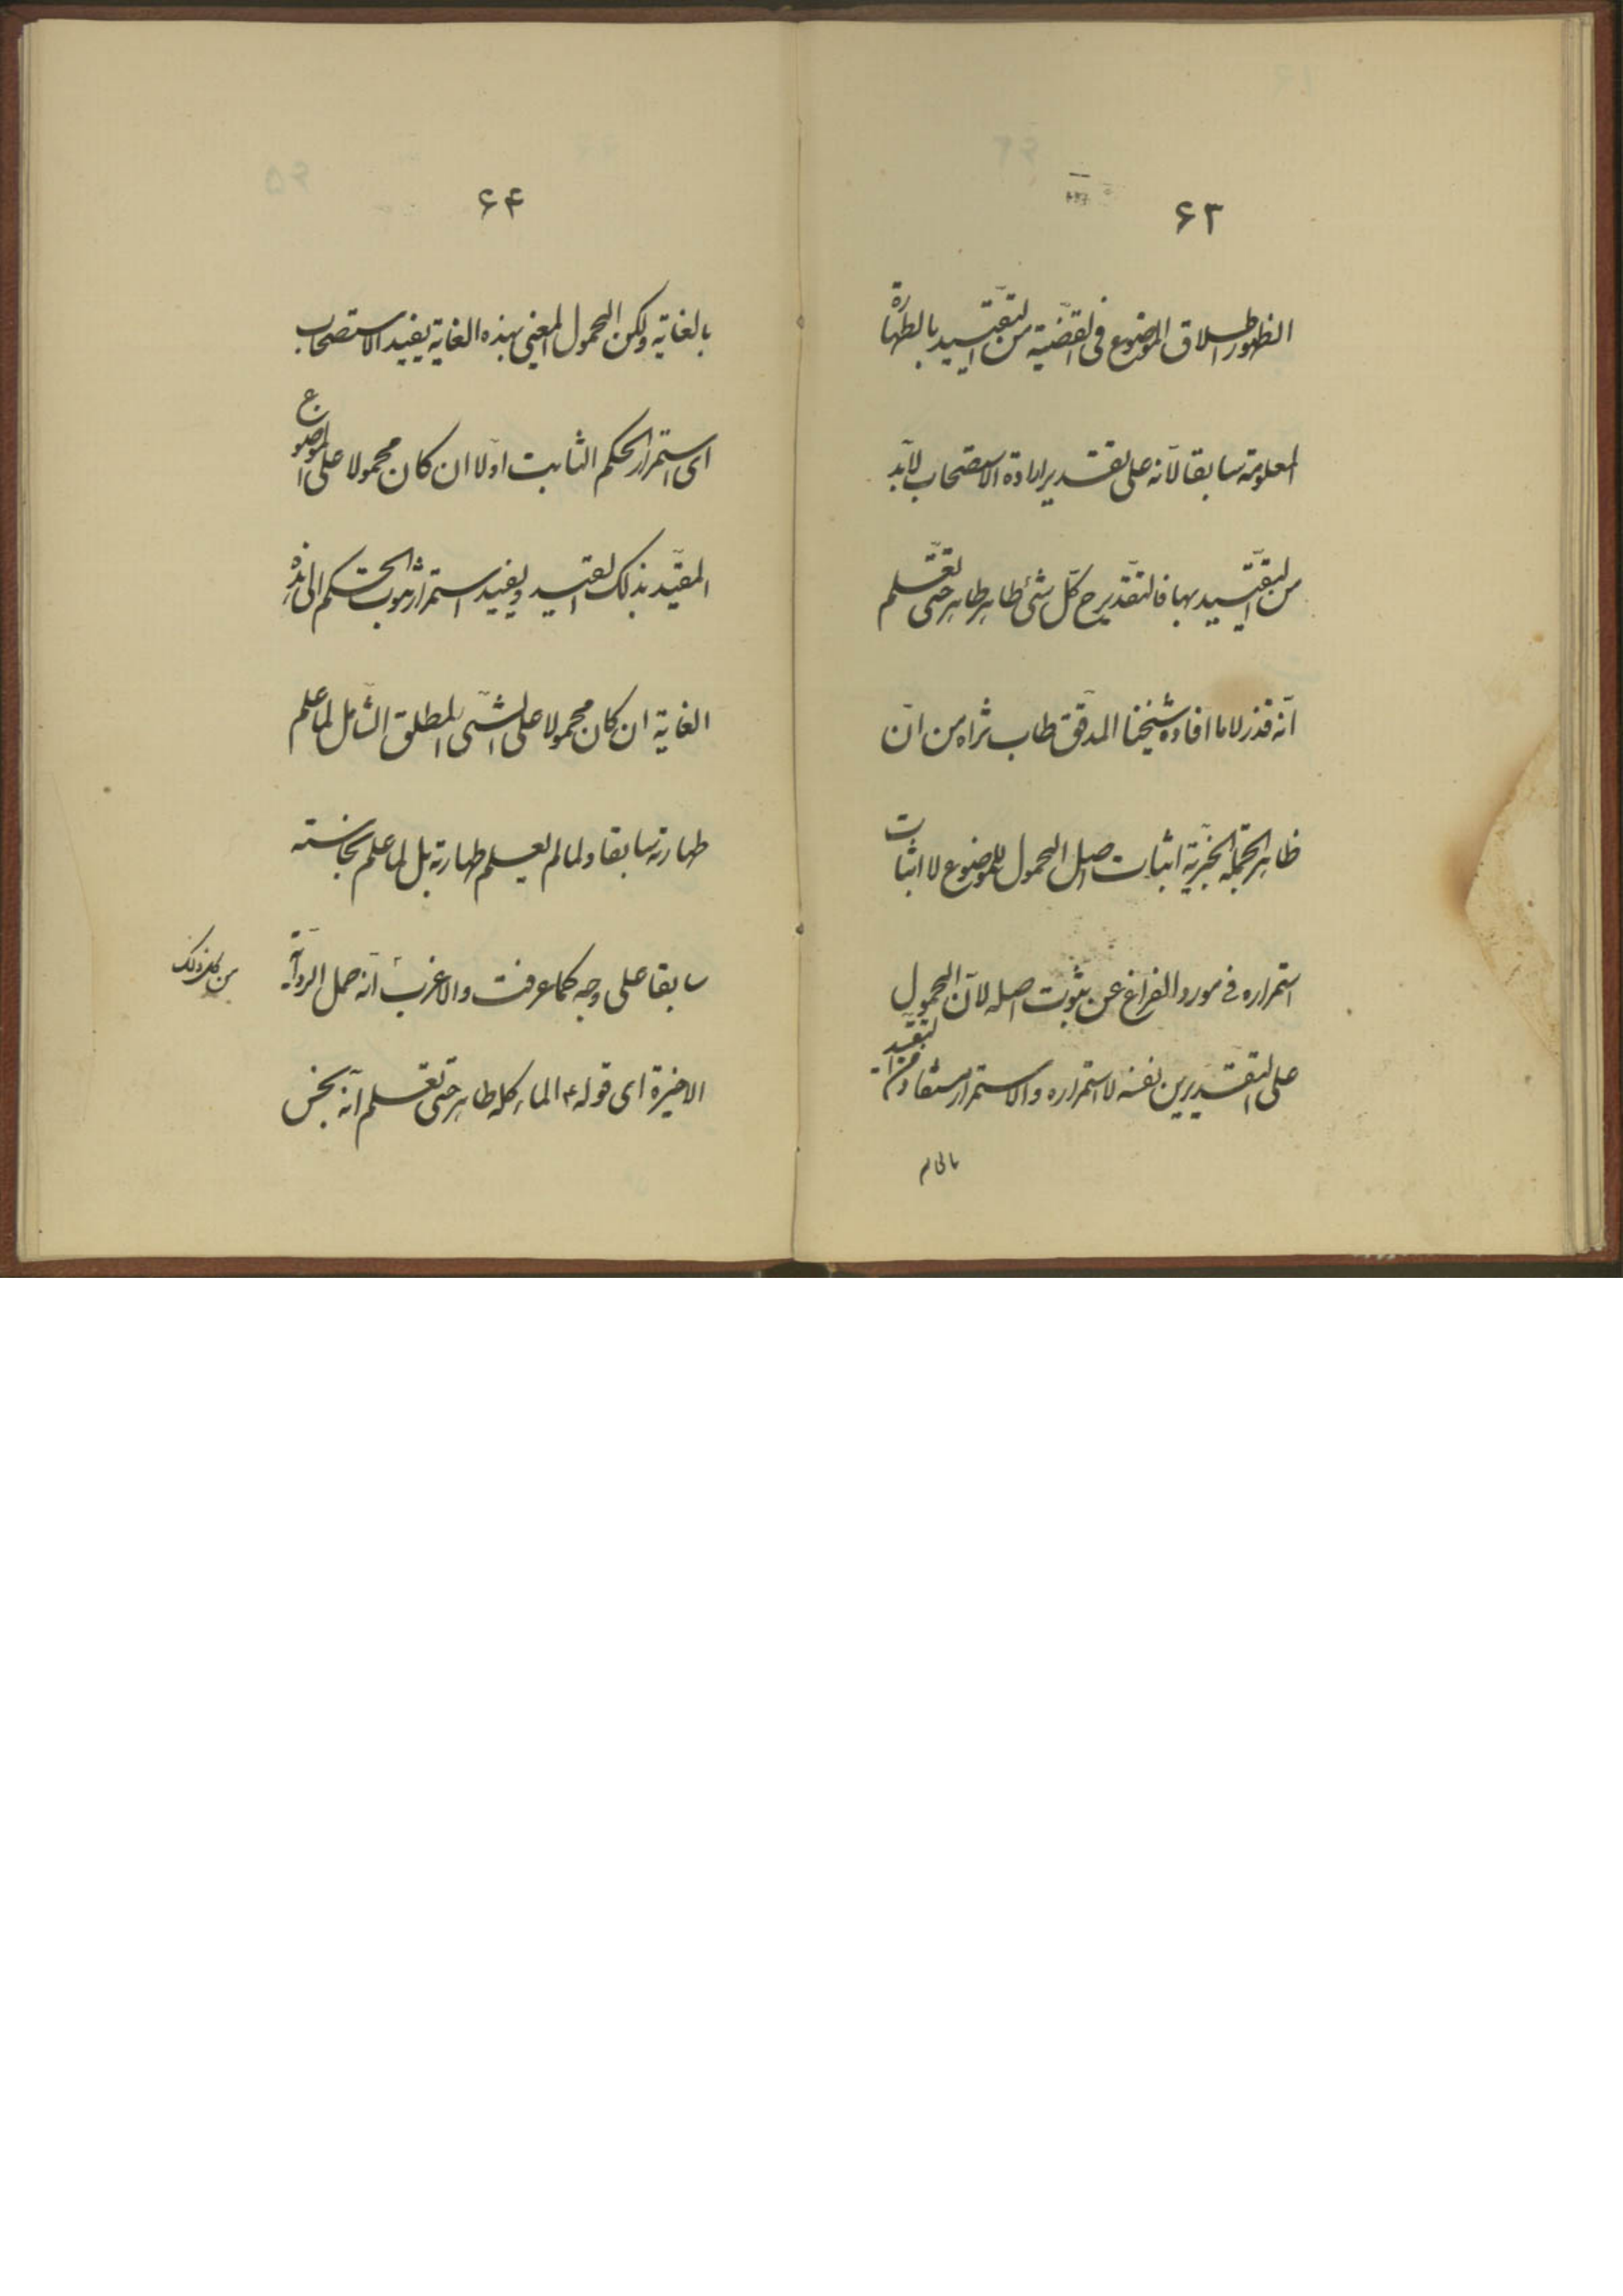 ۶۳
الظهور اطلاق الموضوع فی القضیّة من التقیید بالطهارة
المعلومة سابقا لانّه علی تقدیر ارادة الاستصحاب لابّد
من التقیید بها فالتقدیر ح کلّ شئ طاهر طاهر حتی تعلم
انّه قذر لا ما افاده شیخنا المدقق طاب ثراه من انّ
ظاهر الجملة الخبریّة اثبات اصل المحمول للموضوع لا اثبات
استمراره فی مورد الفراغ عن ثبوت اصله لانّ المحمول
علی التقدیرین نفسه لا استمراره والاستمرار مستفاد من التقیید
بالغایة
۶۴
بالغایة ولکن المحمول المغیی بهذه الغایة یفید الاستصحاب
ای استمرار الحکم الثابت اولا ان کان محمولا علی الموضوع
المقیّد بذلک القید ویفید استمرار ثبوت الحکم الی هذه
الغایة ان کان محمولا علی الشئ المطلق الشامل لما علم
طهارته سابقا ولما لم یعلم طهارته بل لما علم نجاسته
سابقا علی وجه کما عرفت والاغرب من کل ذلک انّه حمل الروایة
الاخیرة ای قوله ع الماء کله طاهر حتی تعلم انّه نجس